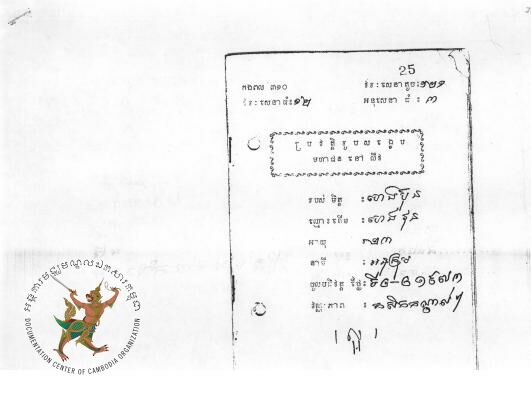 25
កងពល ៣១០
វរៈសេនាតូចៈ ១២១
វរៈសេនាធំៈ ១២
អនុសេនា ធំ ៈ ៣
ប្រវត្តិរូបសង្ខេប
មហាជន នៅ លីវ
របស់ មិត្ត ៈ ហេង ប៊ុន
ឈ្មោះដើម ៈ ហេង
អាយុ ៈ ២៣
នាទី ៈ អនុក្រុម
ចូលបដិវត្ត ថ្ងៃៈ
វណ្ណៈភាព ៈ កសិករកណ្ដាល
អង្គការមជ្ឈមណ្ឌលឯកសារកម្ពុជា
DOCUMENTATION CENTER OF CAMBODIA ORGANIZATION